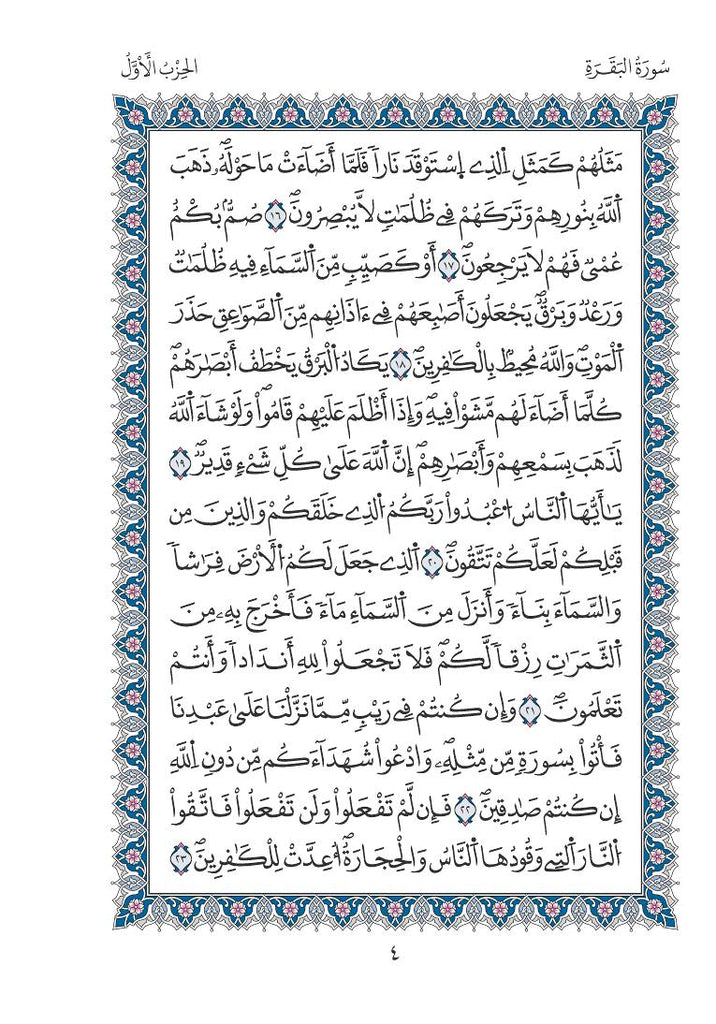 سُورَةُ البَقَرَةِ
الحِزْبُ الْأَوَّلُ
مَثَلُهُمْ كَمَثَلِ اِ۬لذِے اِ۪سْتَوْقَدَ نَاراٗ فَلَمَّا أَضَآءَتْ مَا حَوْلَهُۥۖ ذَهَبَ
اَ۬للَّهُ بِنُورِهِمْ وَتَرَكَهُمْ فِے ظُلُمَٰتٖ لَّا يُبْصِرُونَۖ ١٦ صُمُّۢ بُكْمٌ
عُمْيٞ فَهُمْ لَا يَرْجِعُونَۖ ١٧ أَوْ كَصَيِّبٖ مِّنَ اَ۬لسَّمَآءِ فِيهِ ظُلُمَٰتٞ
وَرَعْدٞ وَبَرْقٞۖ يَجْعَلُونَ أَصَٰبِعَهُمْ فِےٓ ءَاذَانِهِم مِّنَ اَ۬لصَّوَٰعِقِ حَذَرَ
اَ۬لْمَوْتِۖ وَاللَّهُ مُحِيطُۢ بِالْكَٰفِرِينَۖ ١٨ يَكَادُ اُ۬لْبَرْقُ يَخْطَفُ أَبْصَٰرَهُمْۖ
كُلَّمَآ أَضَآءَ لَهُم مَّشَوْاْ فِيهِۖ وَإِذَآ أَظْلَمَ عَلَيْهِمْ قَامُواْۖ وَلَوْ شَآءَ اَ۬للَّهُ
لَذَهَبَ بِسَمْعِهِمْ وَأَبْصَٰرِهِمْۖ إِنَّ اَ۬للَّهَ عَلَىٰ كُلِّ شَےْءٖ قَدِيرٞۖ ١٩
يَٰٓأَيُّهَا اَ۬لنَّاسُ اُ۟عْبُدُواْ رَبَّكُمُ اُ۬لذِے خَلَقَكُمْ وَالذِينَ مِن
قَبْلِكُمْ لَعَلَّكُمْ تَتَّقُونَۖ ٢٠ اَ۬لذِے جَعَلَ لَكُمُ اُ۬لْأَرْضَ فِرَٰشاٗ
وَالسَّمَآءَ بِنَآءٗ وَأَنزَلَ مِنَ اَ۬لسَّمَآءِ مَآءٗ فَأَخْرَجَ بِهِۦ مِنَ
اَ۬لثَّمَرَٰتِ رِزْقاٗ لَّكُمْۖ فَلَا تَجْعَلُواْ لِلهِ أَندَاداٗ وَأَنتُمْ
تَعْلَمُونَۖ ٢١ وَإِن كُنتُمْ فِے رَيْبٖ مِّمَّا نَزَّلْنَا عَلَىٰ عَبْدِنَا
فَأْتُواْ بِسُورَةٖ مِّن مِّثْلِهِۦۖ وَادْعُواْ شُهَدَآءَكُم مِّن دُونِ اِ۬للَّهِ
إِن كُنتُمْ صَٰدِقِينَۖ ٢٢ فَإِن لَّمْ تَفْعَلُواْ وَلَن تَفْعَلُواْ فَاتَّقُواْ
اُ۬لنَّارَ اَ۬لتِے وَقُودُهَا اَ۬لنَّاسُ وَالْحِجَارَةُۖ أُعِدَّتْ لِلْكَٰفِرِينَۖ ٢٣
٤